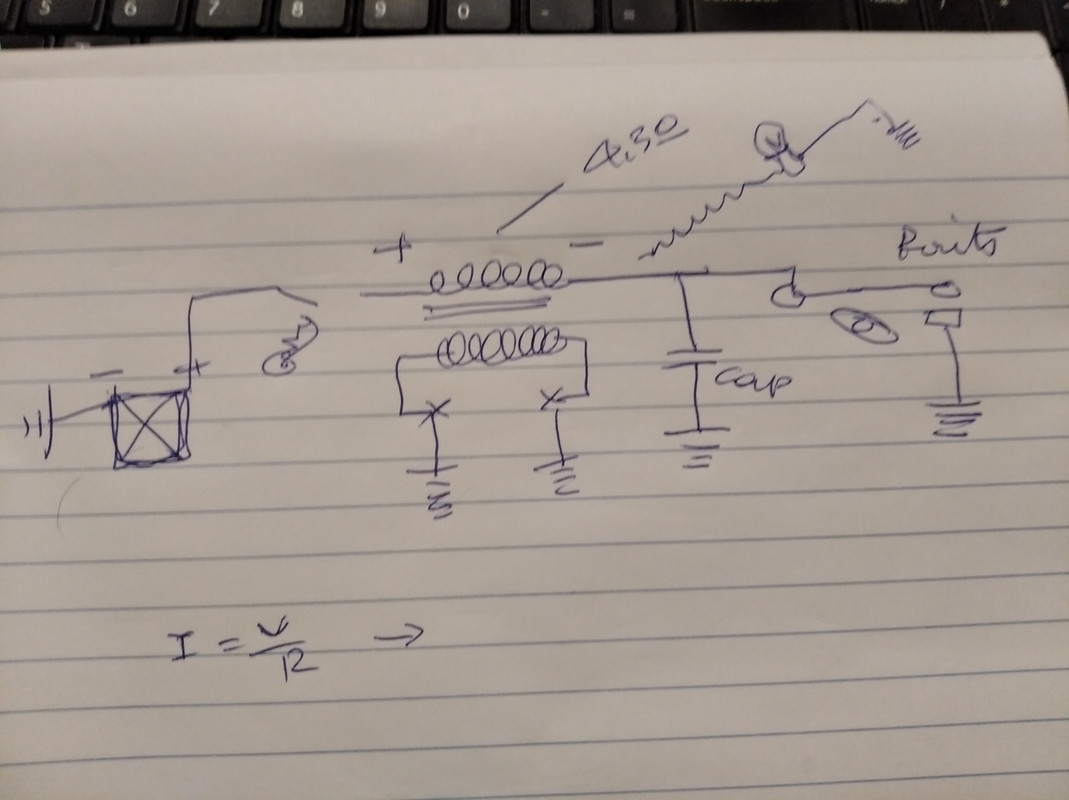 5 6 7 8 9 0 - =
4,30
V
+ -
Points
- +
cap
I = V/R →